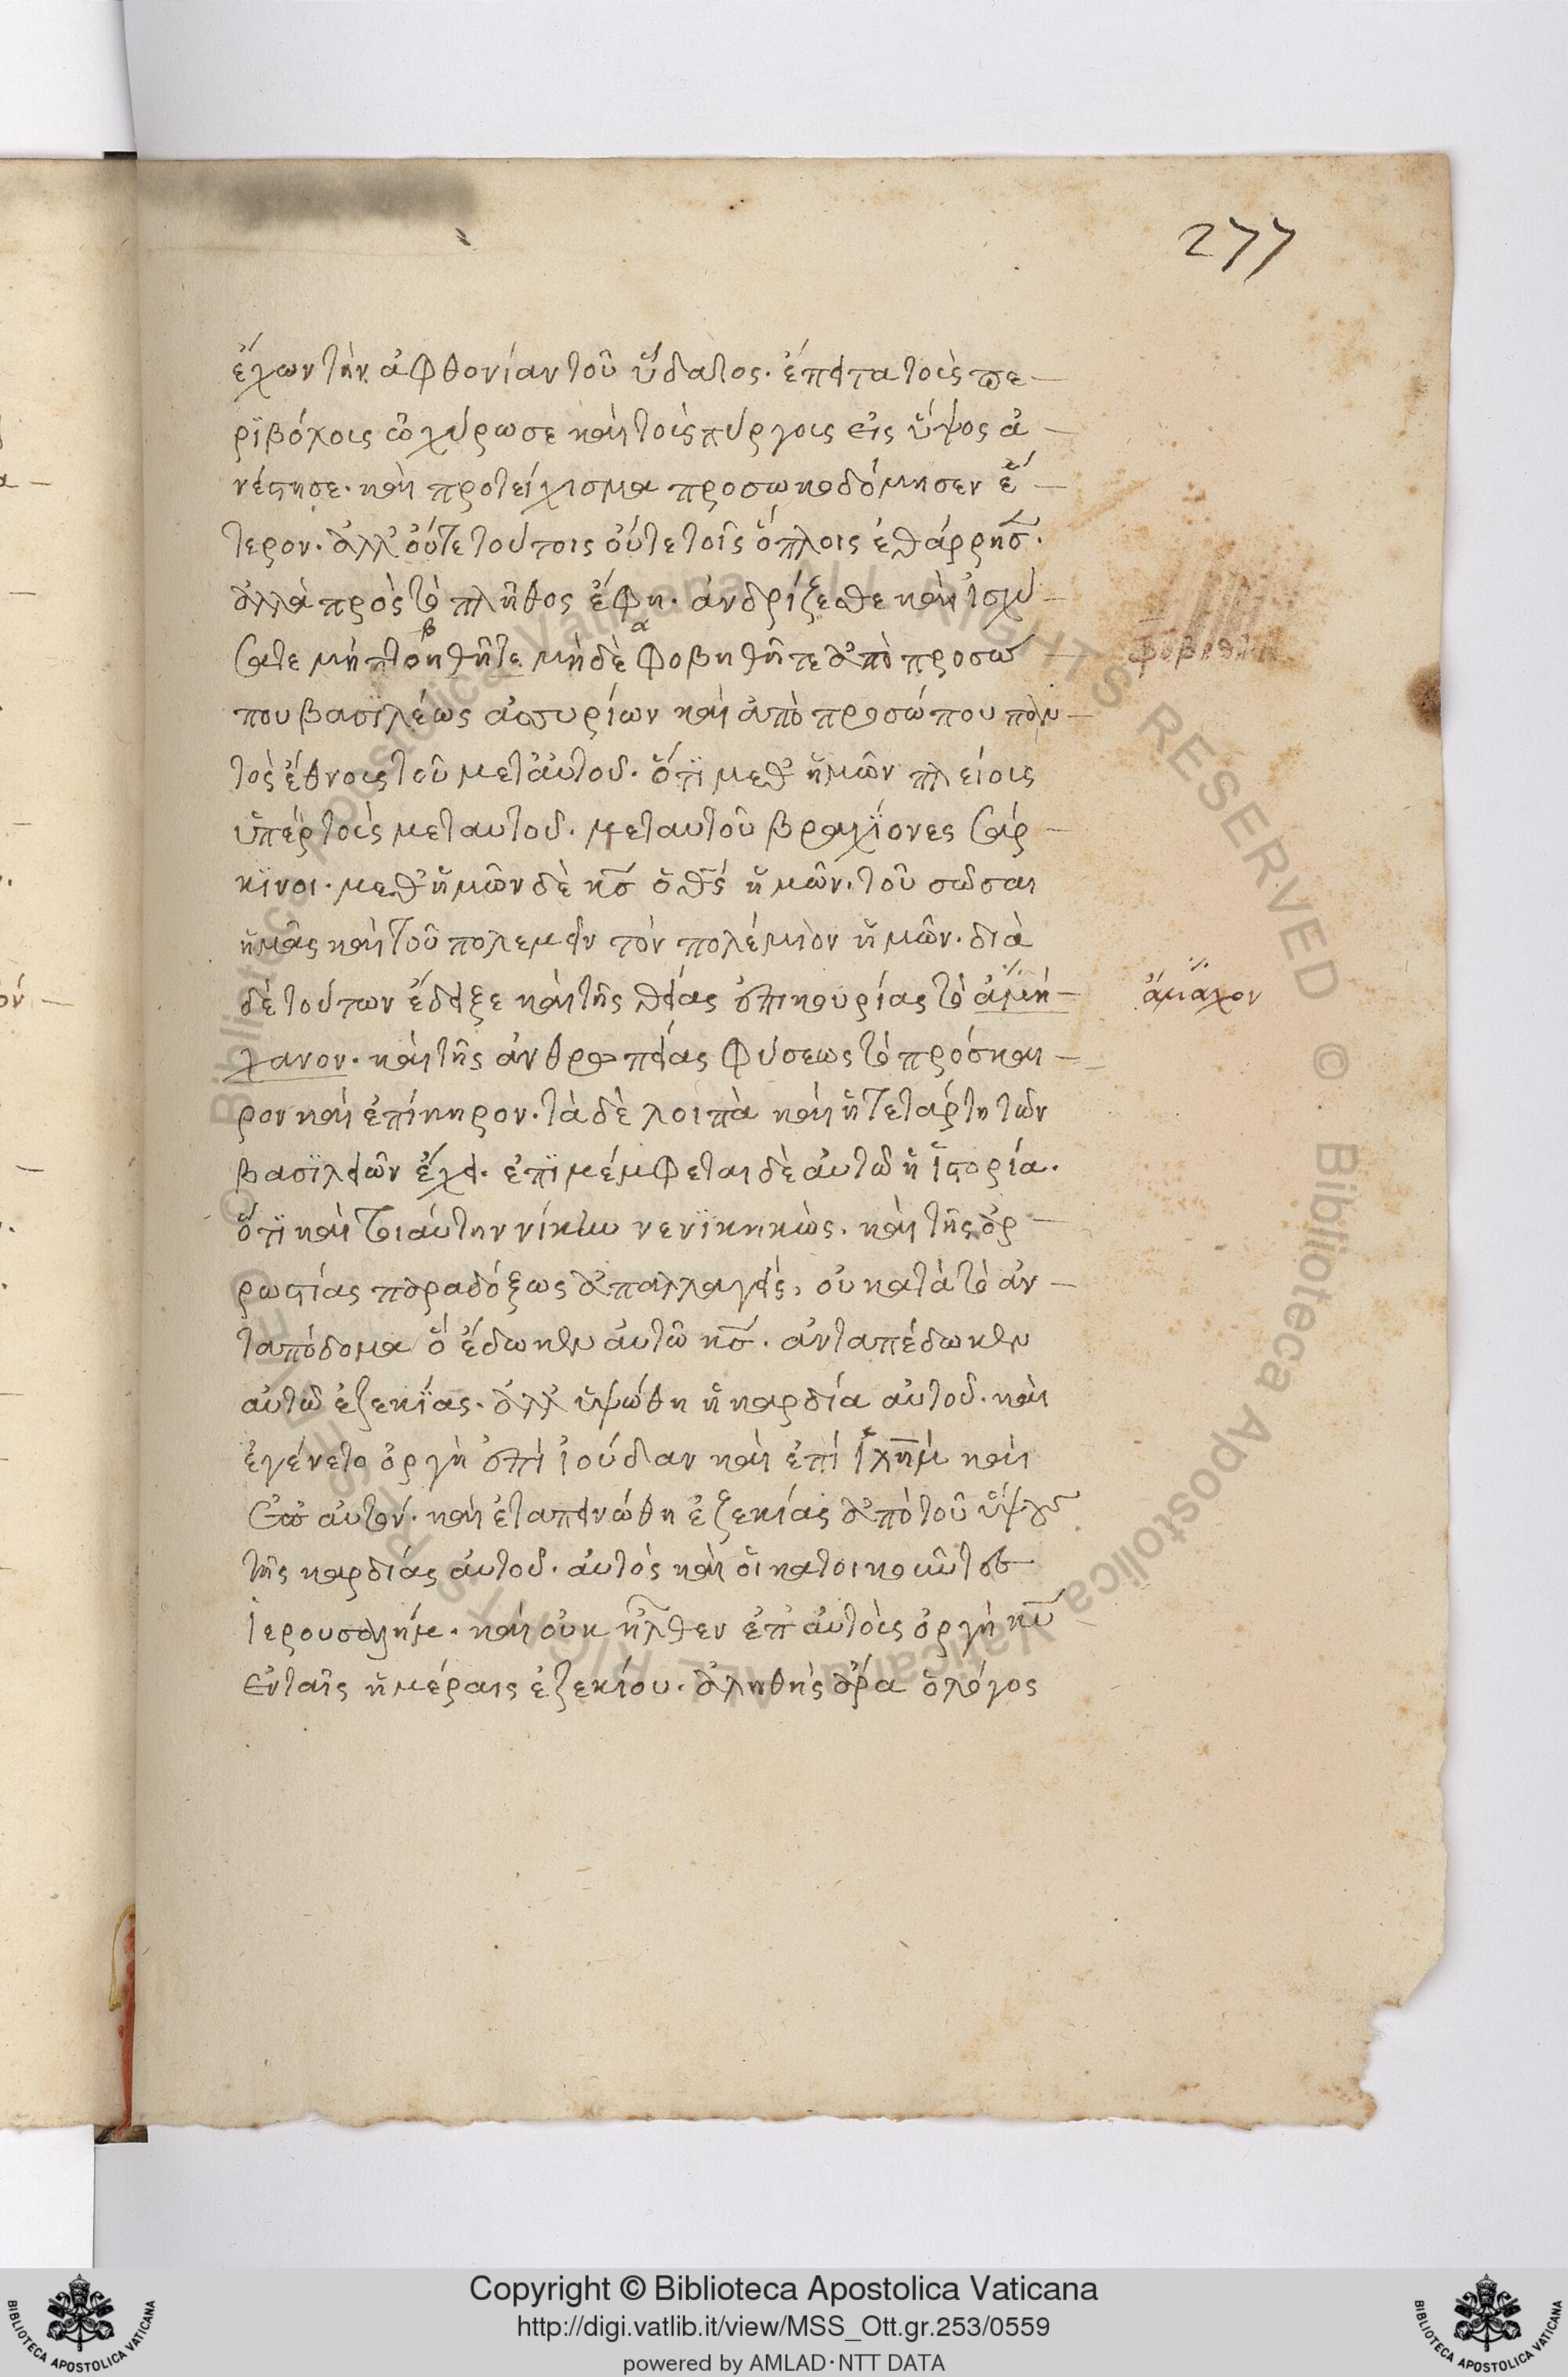 277
ἔχων τὴν ἀφθονίαν τοῦ ὕδατος. ἔπειτα τοὺς πε-
ριβόλους ὠχύρωσε καὶ τοὺς πύργους εἰς ὕψος ἀ-
νέστησε. καὶ προτείχισμα προσωκοδόμησεν ἕ-
τερον. ἀλλ' οὔτε τούτοις οὔτε τοῖς ὅπλοις ἐθάρρησ.
ἀλλὰ πρὸς τὸ πλῆθος ἔφη. ἀνδρίζεσθε καὶ ἰσχύ-
σατε μὴ πτοηθῆτε μηδὲ φοβηθῆτε ἀπὸ προσώ
β α
που βασϊλέως ἀσσυρίων καὶ ἀπὸ προσώπου παν-
τὸς ἔθνους τοῦ μετ' αὐτοῦ. ὅτϊ μεθ' ἡμῶν πλείους
ὑπὲρ τοὺς μεταυτοῦ. μεταυτοῦ βραχΐονες σάρ-
κϊνοι. μεθ' ἡμῶν δὲ κς ὁ θς ἡμῶν. τοῦ σῶσαι
ἡμᾶς καὶ τοῦ πολεμεῖν τὸν πολέμιον ἡμῶν. διὰ
δὲ τούτων ἔδειξε καὶ τῆς θείας ἐπικουρίας τὸ ἀμή-
ἄμαχον
χανον. καὶ τῆς ἀνθρωπείας φύσεως τὸ πρόσκαι-
ρον καὶ ἐπίκηρον. τὰ δὲ λοιπὰ καὶ ἡ τετάρτη τῶν
βασϊλειῶν ἔχει. ἐπϊμέμφεται δὲ αὐτῶ ἡ ἱστορία.
ὅτϊ καὶ τοιαύτην νίκην νενϊκηκὼς. καὶ τῆς ἀρ-
ρωστίας παραδόξως ἀπαλλαγεὶς, οὐ κατὰ τὸ ἀν-
ταπόδομα ὃ ἔδωκεν αὐτῶ κς. ἀνταπέδωκεν
αὐτῶ ἐζεκΐας. ἀλλ' ὑψώθη ἡ καρδία αὐτοῦ. καὶ
ἐγένετο ὀργὴ ἐπὶ ἰούδαν καὶ ἐπὶ ἰλημ καὶ
ἐπ' αὐτόν. καὶ ἐταπεινώθη ἐζεκίας ἀπὸ τοῦ ὕψους
τῆς καρδίας αὐτοῦ. αὐτὸς καὶ οἱ κατοικοῦντες
ἱερουσαλήμ. καὶ οὐκ ἦλθεν ἐπ' αὐτοὺς ὀργὴ κυ
ἐν ταῖς ἡμέραις ἐζεκίου. ἀληθὴς ἄρα ὁ λόγος
Copyright © Biblioteca Apostolica Vaticana
http://digi.vatlib.it/view/MSS_Ott.gr.253/0559
powered by AMLAD·NTT DATA